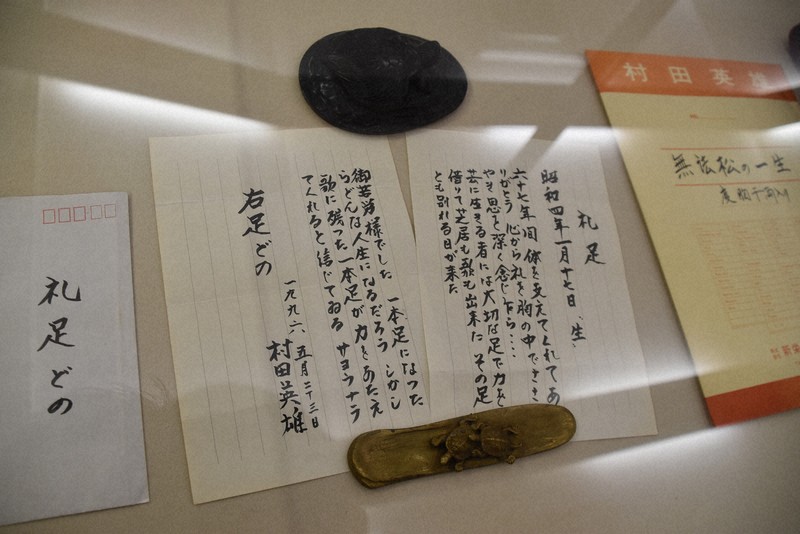 村田英雄
無法松の一生
度胸千両入り
礼足
昭和四年一月十七日、生、
六十七年間体を支えてくれてあ
りがとう 心から礼を胸の中でささ
やき 思を深く念じ乍ら・・・・
芸に生きる者には大切な足で力を
借りて芝居も歌も出来た その足
とも別れる日が来た
御苦労様でした 一本足になった
らどんな人生になるだろう しかし
歌に残った一本足が力をあたえ
てくれると信じてゐる サヨウナラ
右足どの
一九九六 五月二十三日
村田英雄
礼足どの